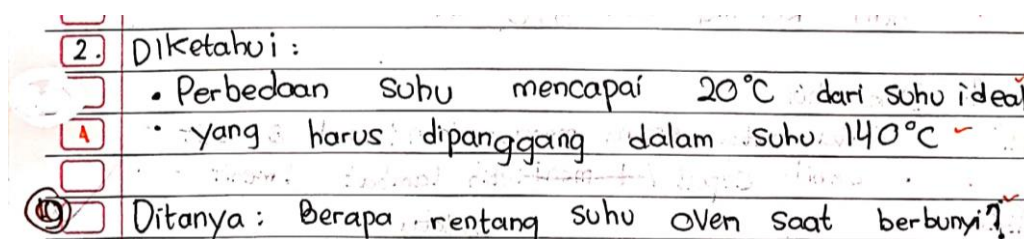 2. Diketahui :
• Perbedaan suhu mencapai 20°C dari suhu ideal
A • yang harus dipanggang dalam suhu 140°C
Ditanya : Berapa rentang suhu oven saat berbunyi?